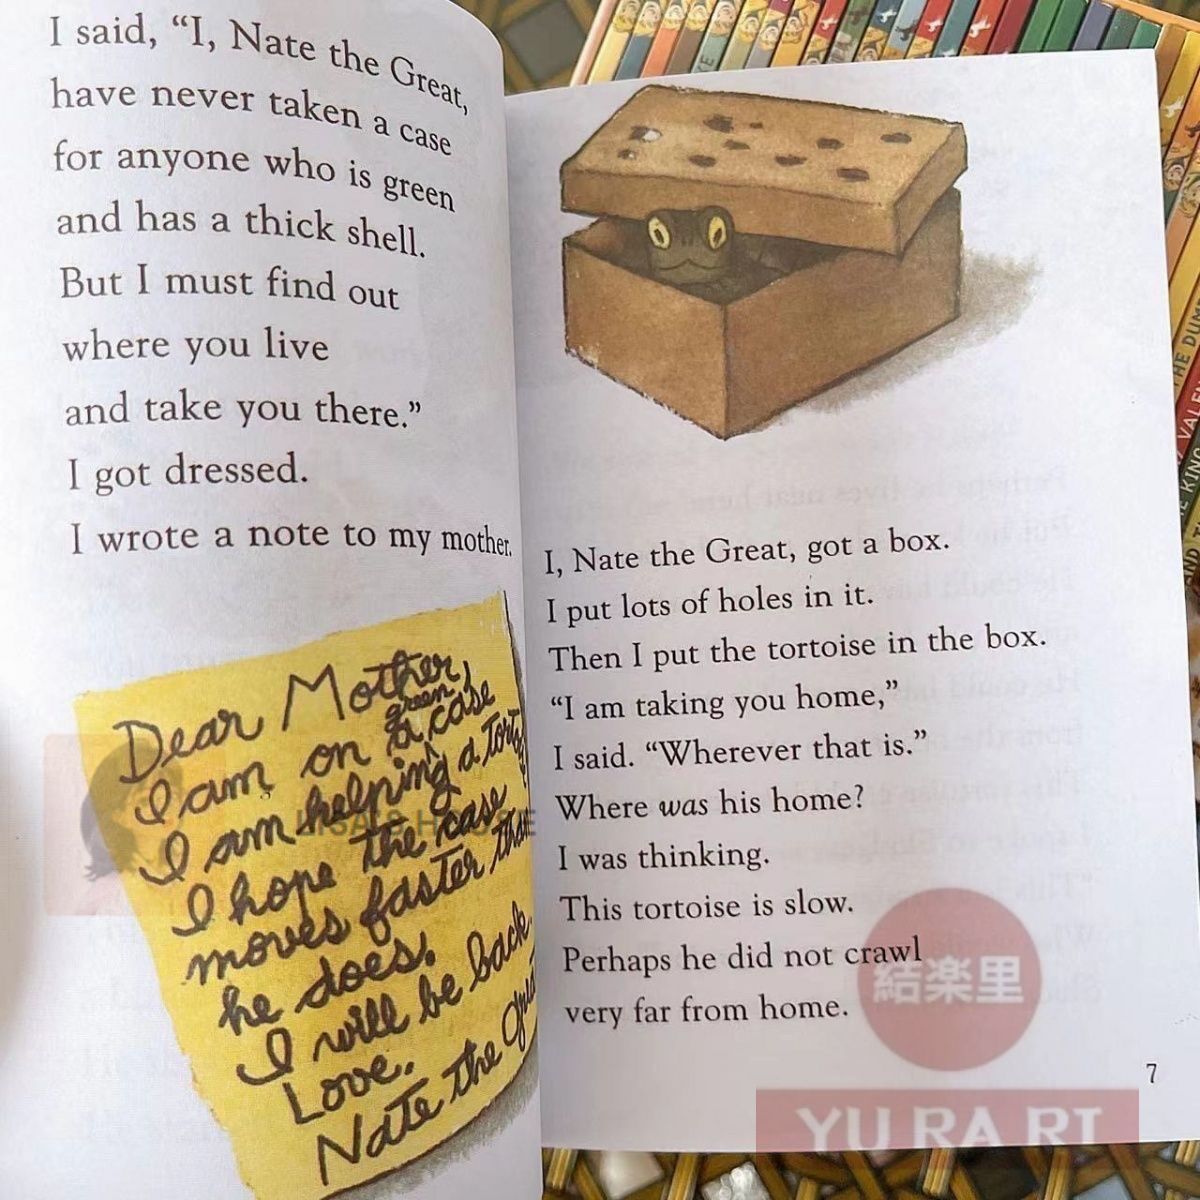 I said, “I, Nate the Great,
have never taken a case
for anyone who is green
and has a thick shell.
But I must find out
where you live
and take you there.”
I got dressed.
I wrote a note to my mother.
Dear Mother,
green
I am on a case
I am helping a
I hope the case
moves faster than
he does.
I will be back.
Love,
Nate the
I, Nate the Great, got a box.
I put lots of holes in it.
Then I put the tortoise in the box.
“I am taking you home,”
I said. “Wherever that is.”
Where was his home?
I was thinking.
This tortoise is slow.
Perhaps he did not crawl
very far from home.
7
LISA'S HOUSE
結楽里
YU RA RI
THE DUM
VALE
KING
AND T